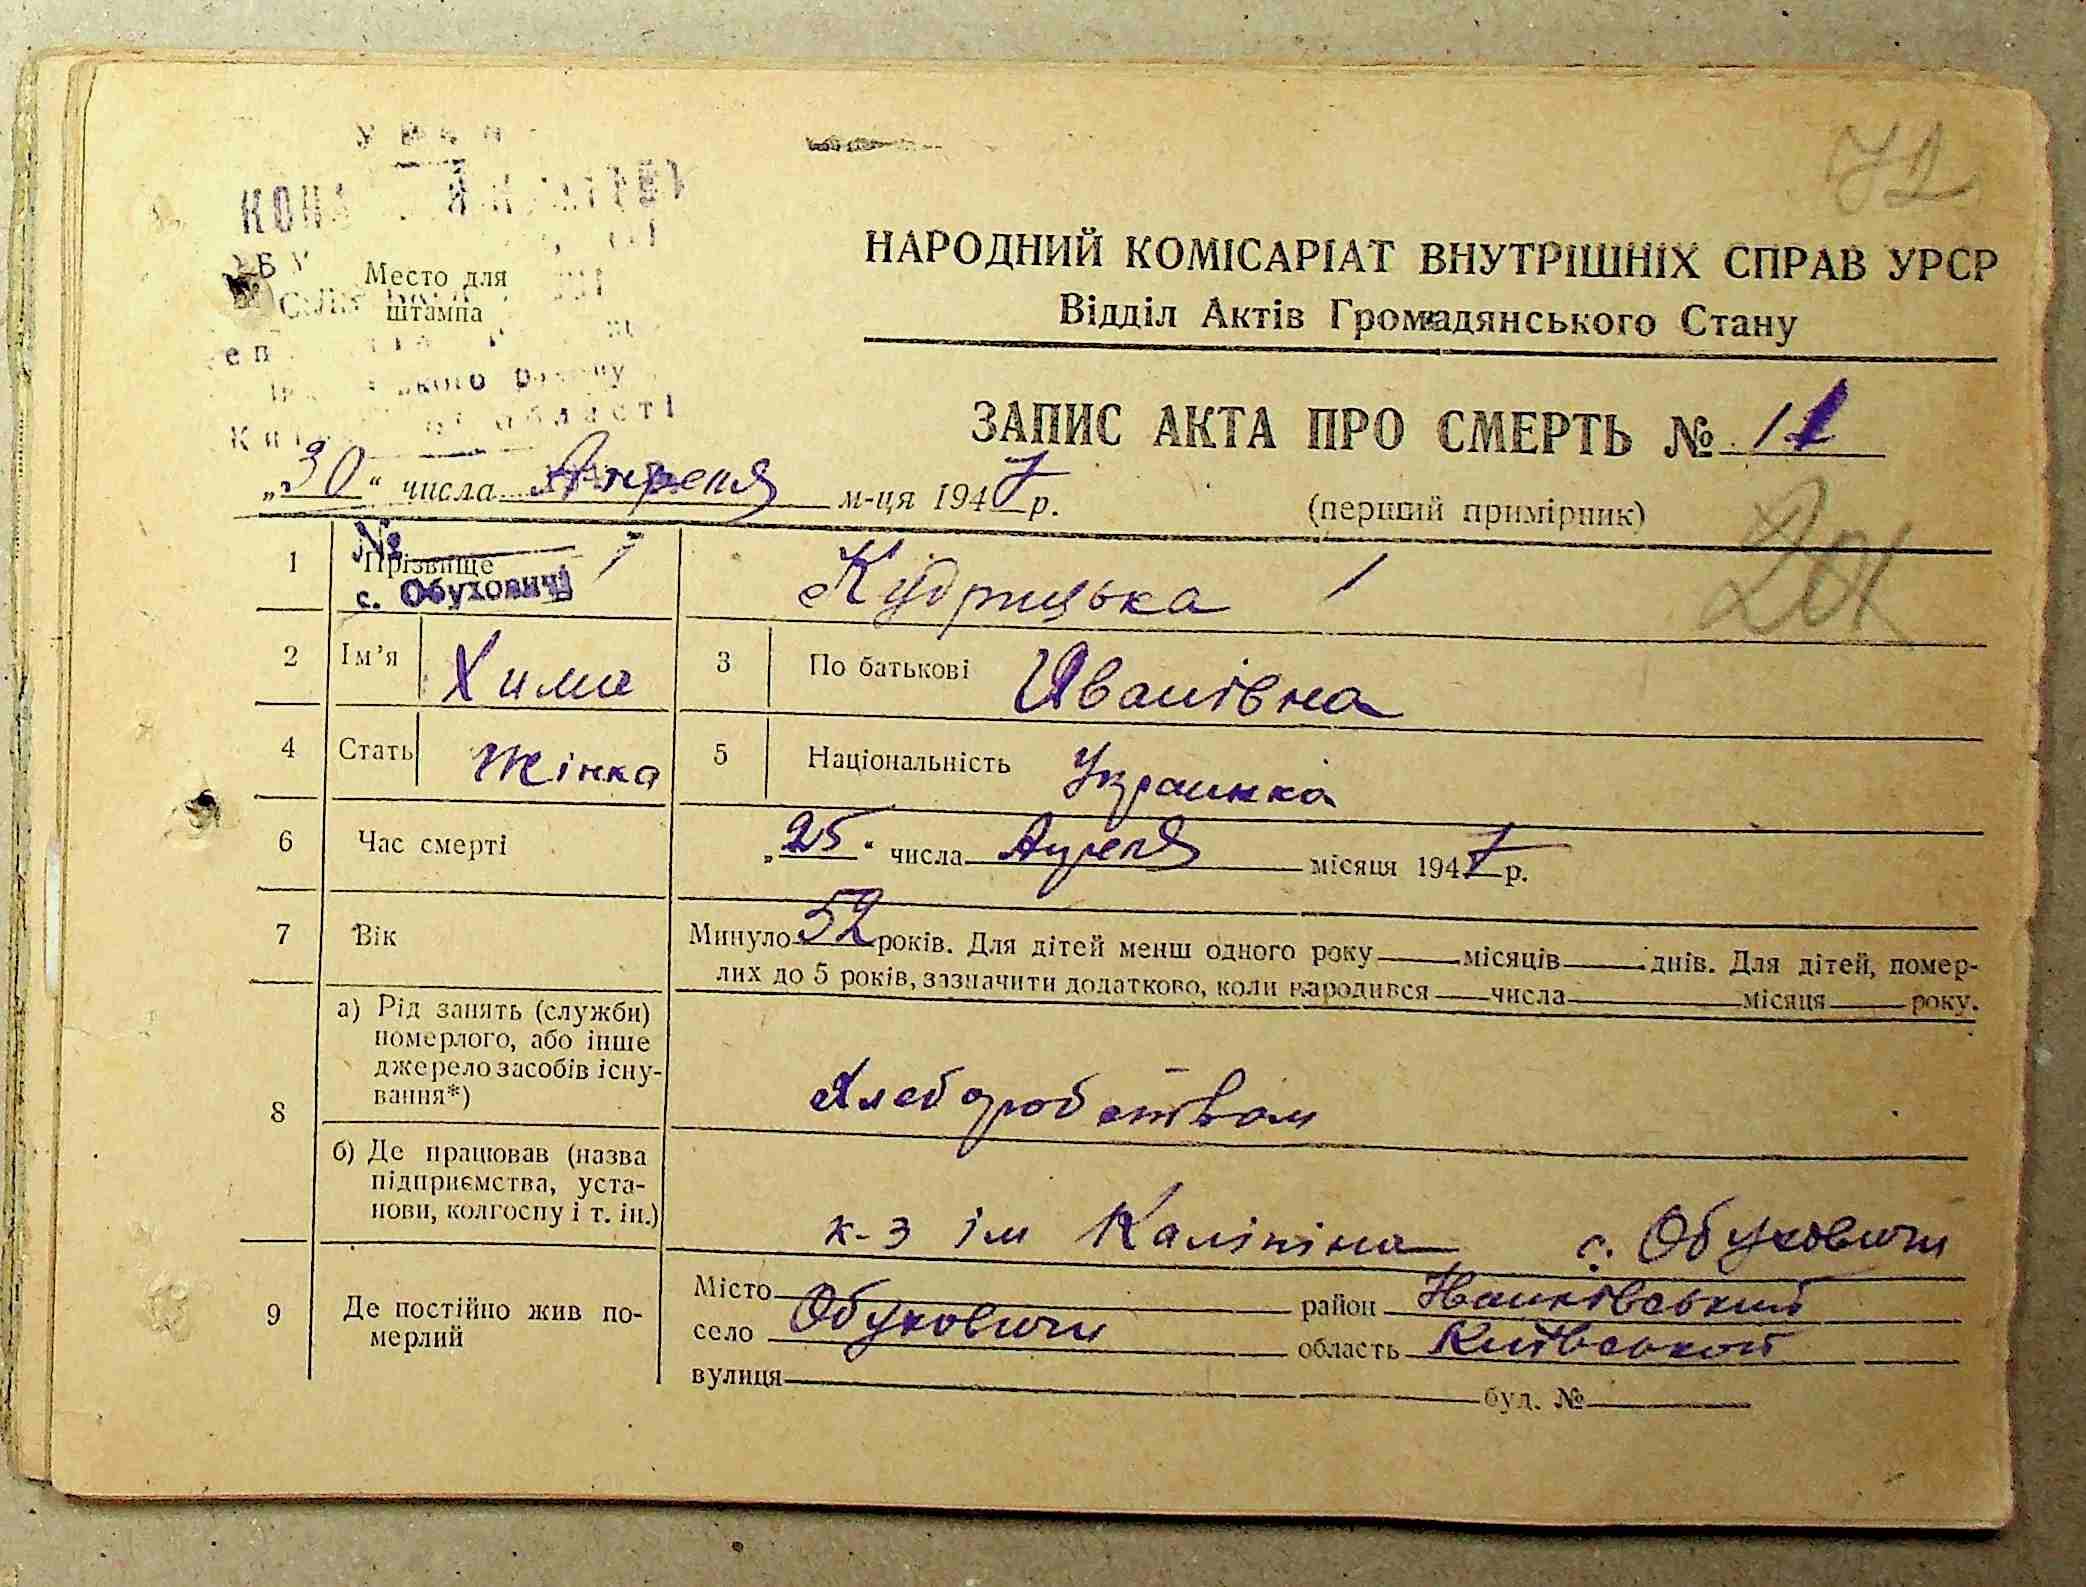 72
Место для
штампа
НАРОДНИЙ КОМІСАРІАТ ВНУТРІШНІХ СПРАВ УРСР
Відділ Актів Громадянського Стану
ЗАПИС АКТА ПРО СМЕРТЬ №
„30“ числа Апреля м-ця 1947 р.
(перший примірник)
1 Прізвище Кудрицька
№
с. Обуховичі
2 Ім’я Хима 3 По батькові Иванівна
4 Стать Жінка 5 Національність Украинка
6 Час смерті „25“ числа Апреля місяця 1947 р.
7 Вік Минуло 52 років. Для дітей менш одного року місяців днів. Для дітей, помер-
лих до 5 років, зазначити додатково, коли народився числа місяця року.
8 а) Рід занять (служби)
померлого, або інше
джерело засобів існу-
вання*)
Хлеборобством
б) Де працював (назва
підприємства, уста-
нови, колгоспу і т. ін.)
к-з ім Калініна с. Обуховичи
9 Де постійно жив по-
мерлий
Місто район
село Обуховичи область Київської
вулиця буд. №